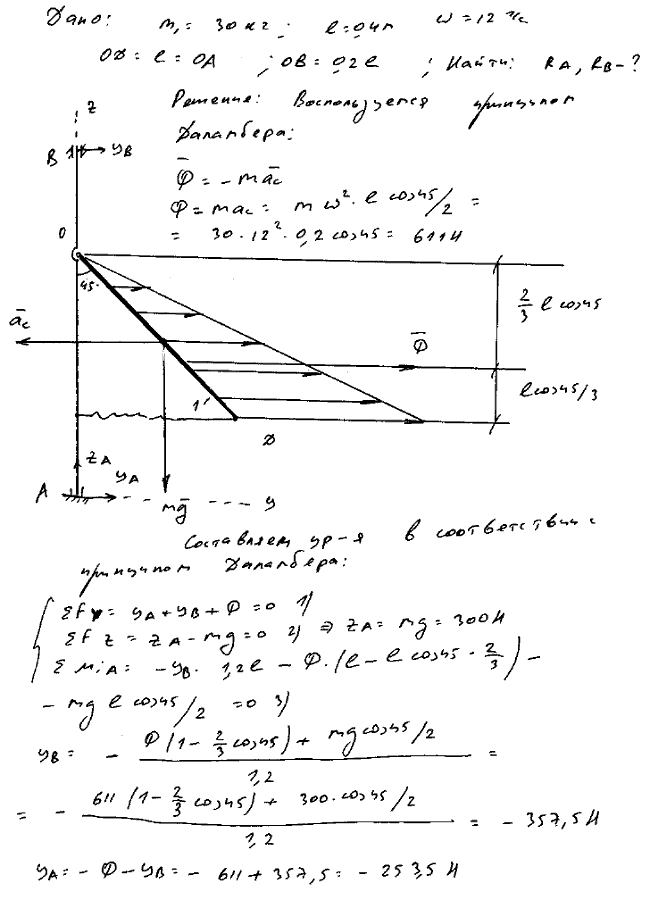 Дано: m₁ = 30 кг; l = 0,4 м ω = 12 1/с
OD = l = OA ; OB = 0,2l ; Найти: RA, RB - ?
Решение: Воспользуемся принципом
Даламбера:
Φ̄ = - m āc
Φ = mac = mω²·l cos45/2 =
= 30·12²·0,2 cos45 = 611 Н
z
B yB
O
45°
2/3 l cos45
āc
Φ̄
l cos45/3
1
D
zA
yA
A
mḡ
y
Составляем ур-я в соответствии с
принципом Даламбера:
ΣFy = yA + yB + Φ = 0 1)
ΣFz = zA - mg = 0 2) ⇒ zA = mg = 300 Н
ΣMiA = -yB·1,2l - Φ·(l - l cos45·2/3) -
- mg l cos45/2 = 0 3)
yB = - (Φ(1 - 2/3 cos45) + mg cos45/2) / 1,2 =
= - (611(1 - 2/3 cos45) + 300·cos45/2) / 1,2 = - 357,5 Н
yA = - Φ - yB = - 611 + 357,5 = - 253,5 Н